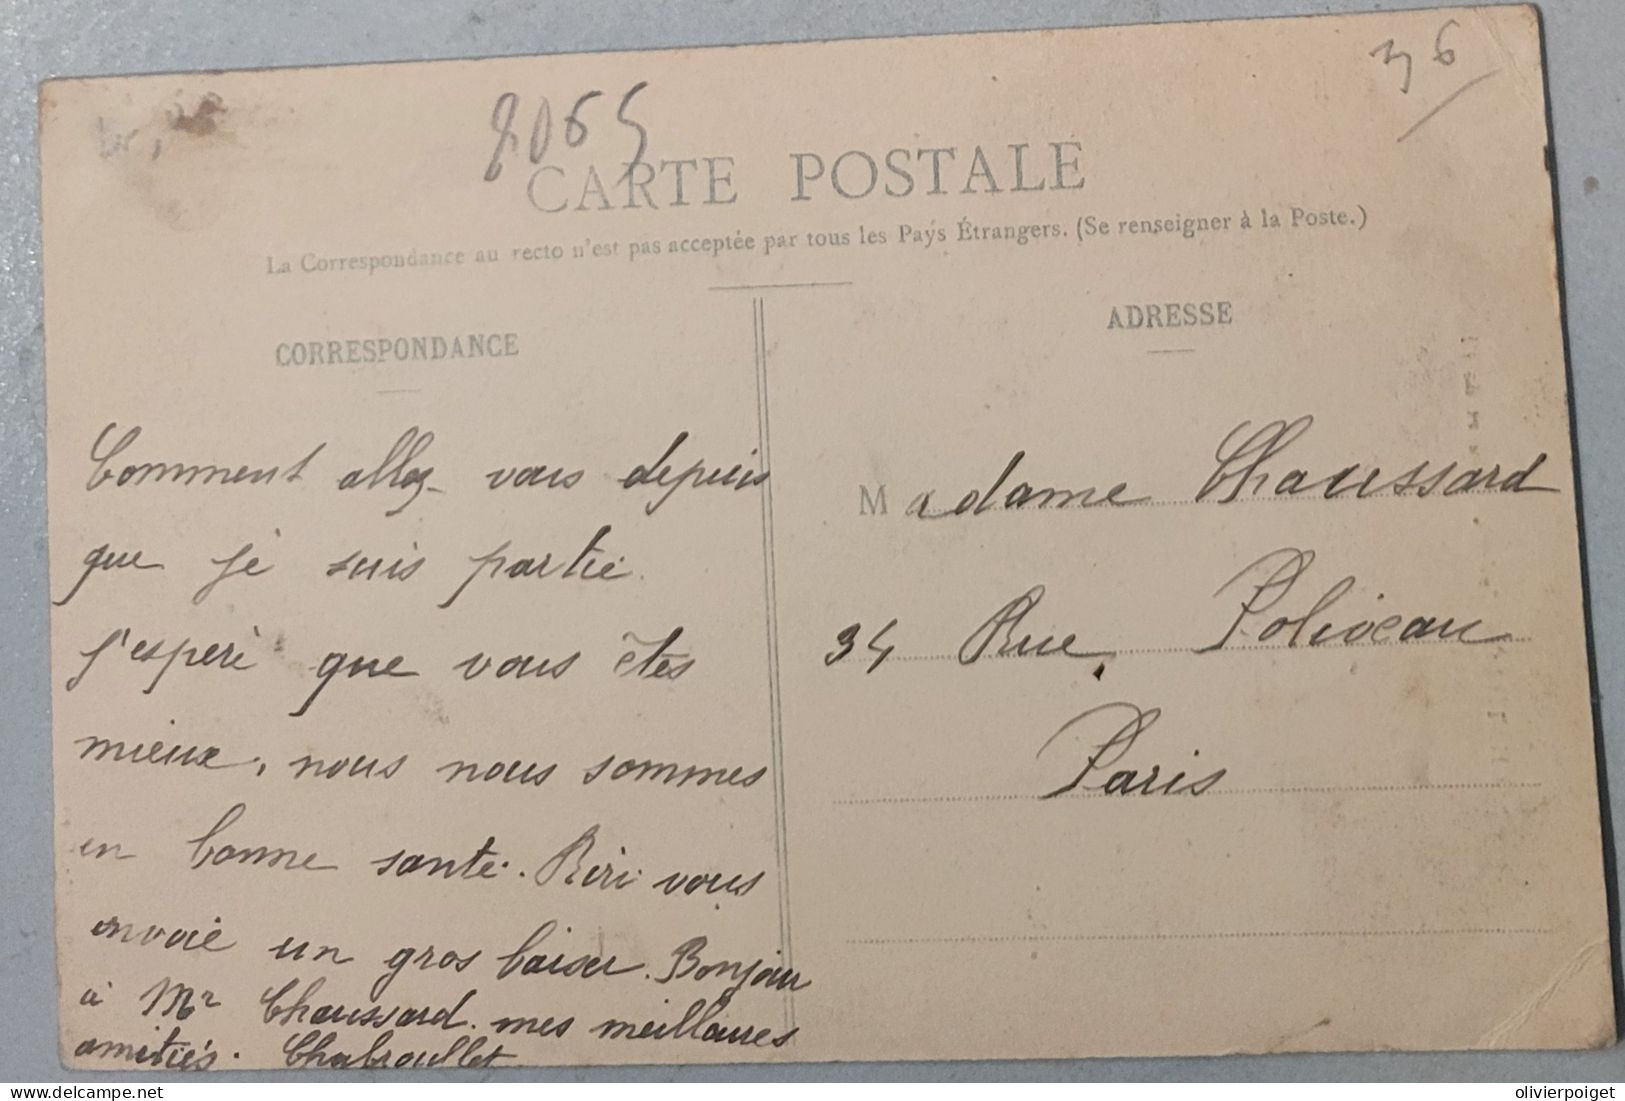 36
8065
CARTE POSTALE
La Correspondance au recto n'est pas acceptée par tous les Pays Étrangers. (Se renseigner à la Poste.)
CORRESPONDANCE
Comment allez vous depuis
que je suis partie.
J'espère que vous êtes
mieux, nous nous sommes
en bonne santé. Riri vous
envoie un gros baiser. Bonjour
à Mr Chaussard. mes meilloures
amitiés. Chabroullet
ADRESSE
Madame Chaussard
34 Rue Poliveau
Paris
delcampe.net
olivierpoiget